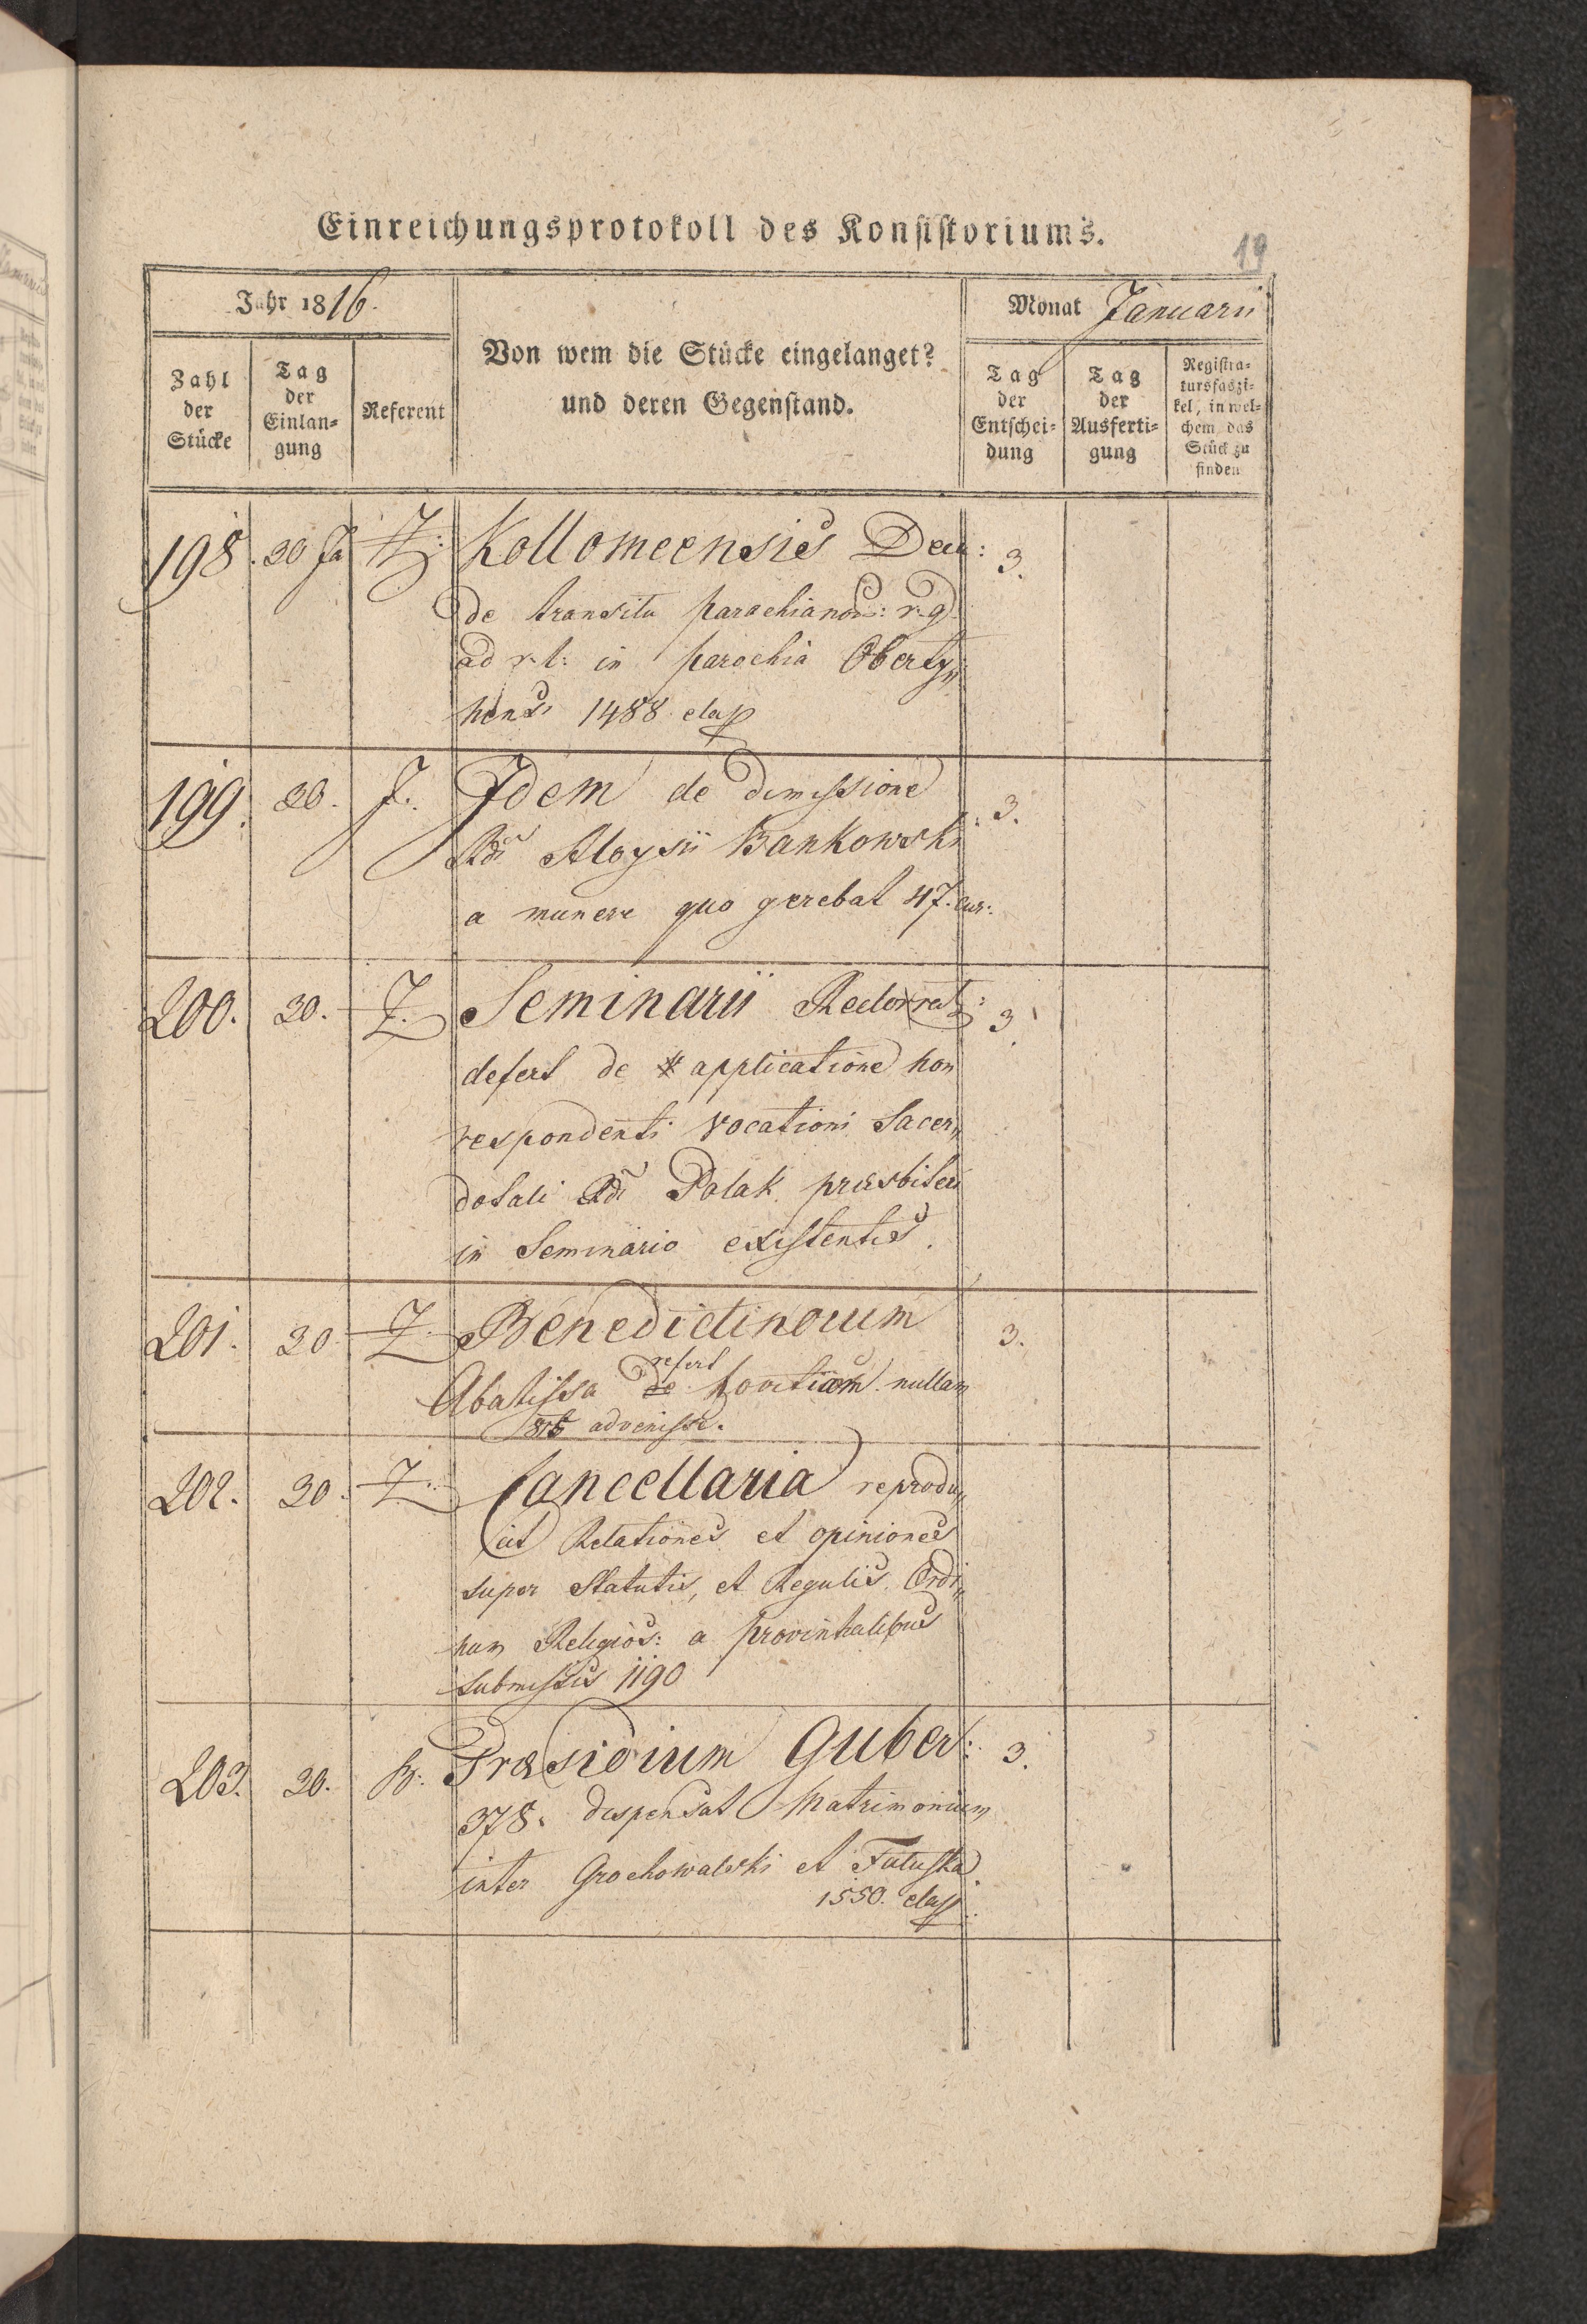 Einreichungsprotokoll des Konsistoriums.
19
Jahr 1816.
Von wem die Stücke eingelanget?
und deren Gegenstand.
Monat Januarii
Zahl
der
Stücke
Tag
der
Einlan=
gung
Referent
Tag
der
Entschei=
dung
Tag
der
Ausferti=
gung
Registra=
tursfaszi=
kel, in wel=
chem das
Stück zu
finden
198. 30 Ja Kollomeensis Dea: 3.
de transitu parochianor: r. g.
ad r. l: in parochia Oberty„
nens 1488 elap
199. 30. J. Idem de dimissione 3.
Adi Aloysii Bankowski
a munere quo gerebat 47. cur:
200. 30. Z. Seminarii Rectorat: 3
defert de applicatione non
respondenti vocationi Sacer„
dotali Adi Polak praesbiteri
in Seminario existentis.
201. 30 Z. Benedictinarum 3.
refert
Abatissa de novitiam nullam
1815 advenisse.
202. 30. Z. Cancellaria reprodu„
cit Relationes et opiniones
super Statutis, et Regulis Ordi„
num Religios: a provintialibus
submissis 1190
203. 30. Praesidium Guber: 3.
378. dispensat Matrimonium
inter Grochowalski et Tatuska
1550. elap